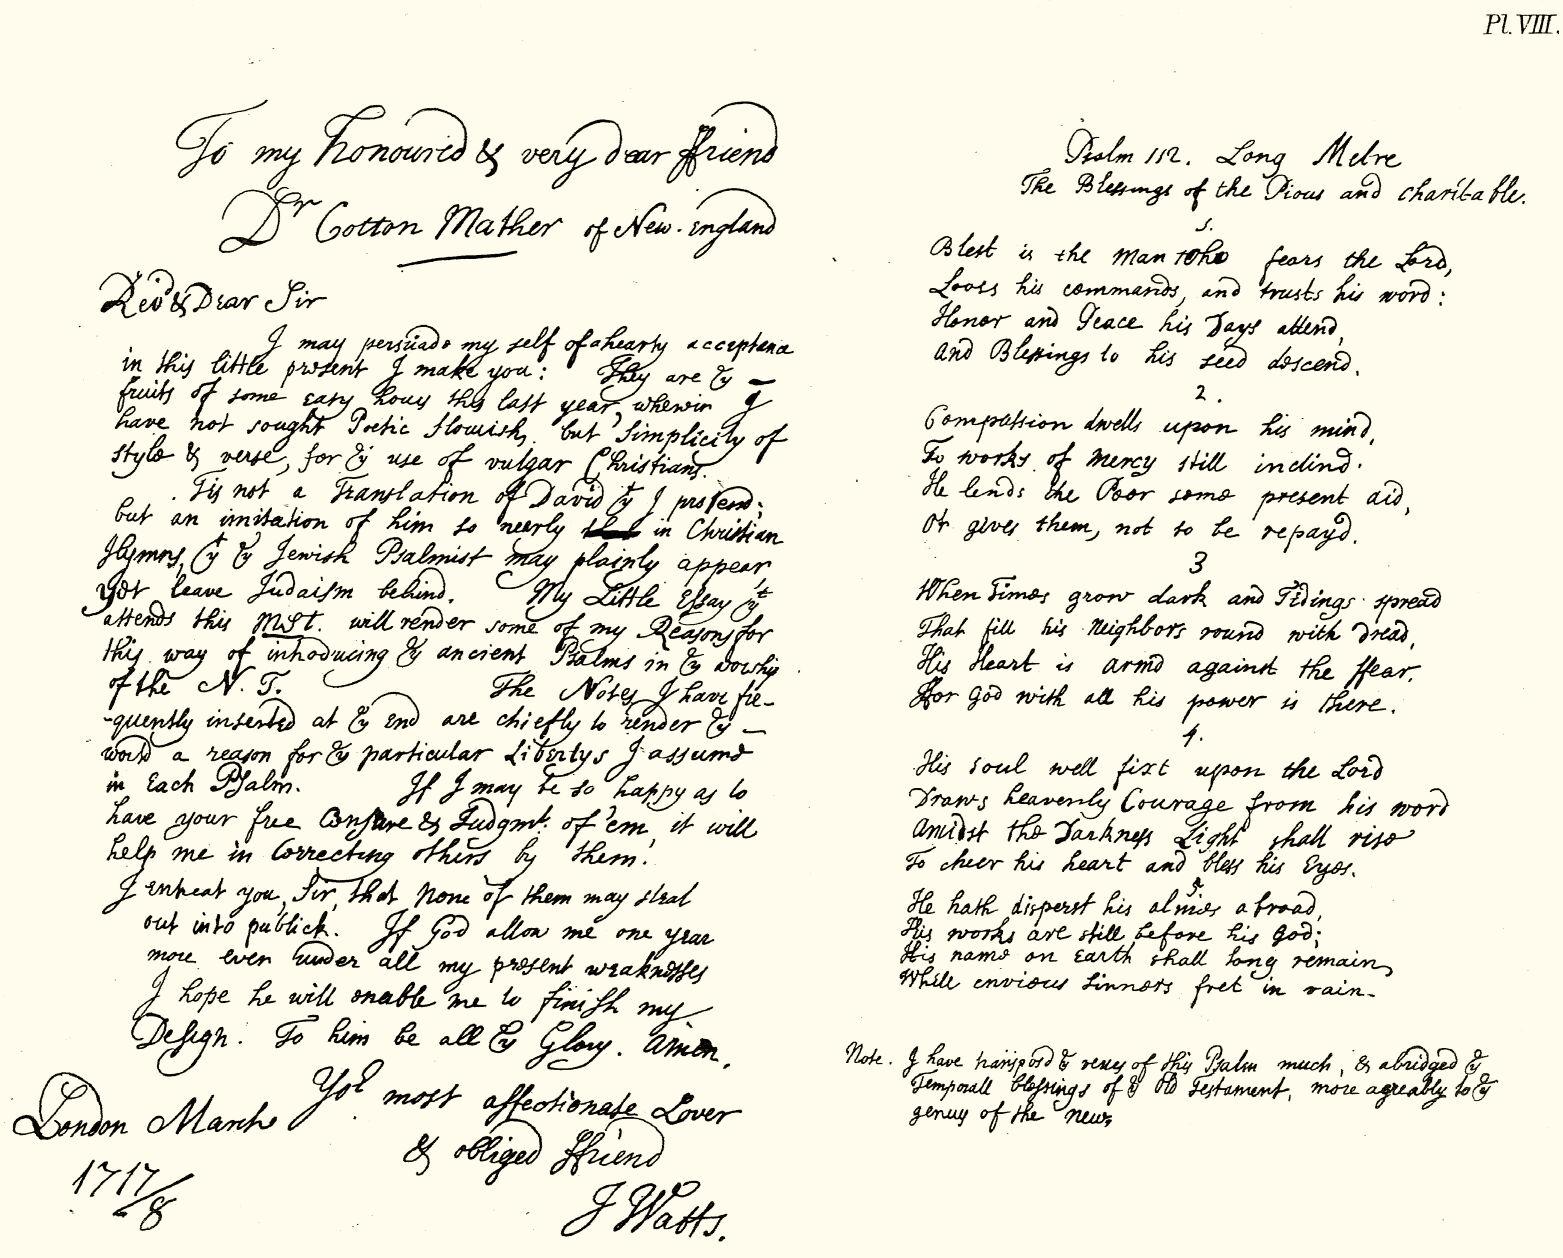 Pl. VIII.
To my honoured & very dear ffriend
Dr Cotton Mather of New-England
Revd & Dear Sir
I may persuade my self of a hearty acceptance
in this little present I make you: They are ye
fruits of some easy hours this last year, wherein I
have not sought Poetic flourish, but simplicity of
style & verse, for ye use of vulgar Christians.
Tis not a Translation of David yt I pretend;
but an imitation of him so neerly in Christian
Hymns, yt ye Jewish Psalmist may plainly appear
yet leave Judaism behind. My Little Essay yt
attends this MSt. will render some of my Reasons for
this way of introducing ye ancient Psalms in ye worship
of the N. T. The Notes I have fre-
-quently inserted at ye End are chiefly to render ye
world a reason for ye particular Libertys I assume
in Each Psalm. If I may be so happy as to
have your free Censure & Judgmt. of 'em, it will
help me in Correcting others by them.
I entreat you, Sir, that none of them may steal
out into publick. If God allow me one year
more even under all my present weaknesses
I hope he will enable me to finish my
Design. To him be all ye Glory. Amen.
Yor most affectionate Lover
& obliged ffriend
J Watts.
London March
1717/8
Psalm 112. Long Metre
The Blessings of the Pious and charitable.
1.
Blest is the man who fears the Lord,
Loves his commands, and trusts his word:
Honor and Peace his Days attend,
And Blessings to his seed descend.
2.
Compassion dwells upon his mind,
To works of mercy still inclind.
He lends the Poor some present aid,
Or gives them, not to be repayd.
3
When Times grow dark and Tidings spread
That fill his Neighbors round with dread,
His Heart is armd against the ffear,
Ffor God with all his power is there.
4.
His soul well fixt upon the Lord
Draws heavenly Courage from his word
Amidst the Darkness Light shall rise
To cheer his heart and bless his Eyes.
5.
He hath disperst his almes abroad,
His works are still before his God;
His name on Earth shall long remain,
While envious Sinners fret in vain.
Note. I have transposd ye verses of this Psalm much, & abridged ye
Temporall blessings of ye Old Testament, more agreably to ye
genius of the new